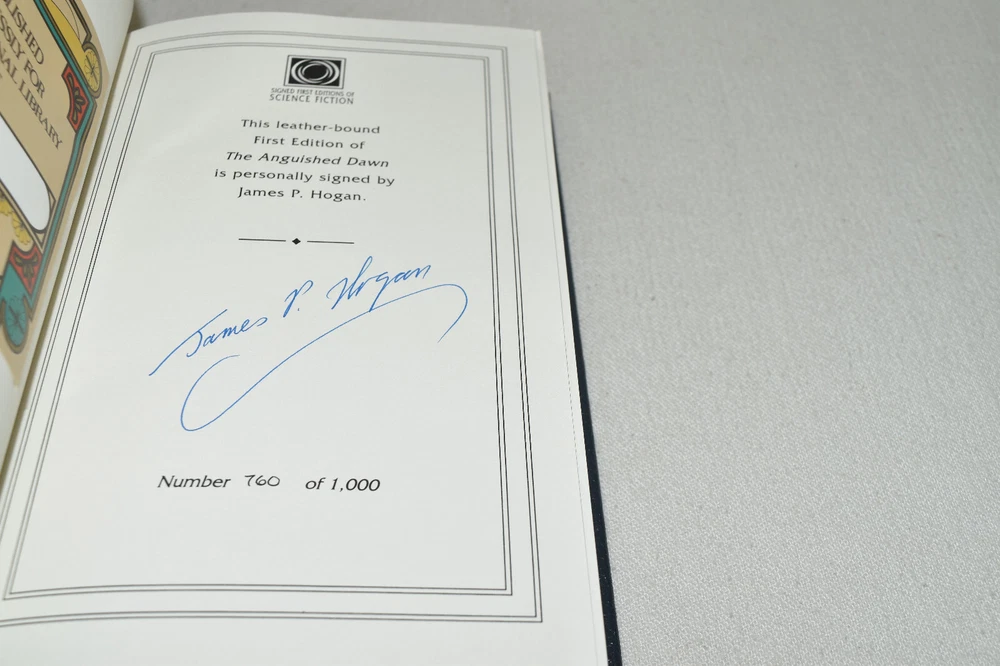 LISHED
SSLY FOR
NAL LIBRARY
SIGNED FIRST EDITIONS OF
SCIENCE FICTION
This leather-bound
First Edition of
The Anguished Dawn
is personally signed by
James P. Hogan.
James P. Hogan
Number 760 of 1,000